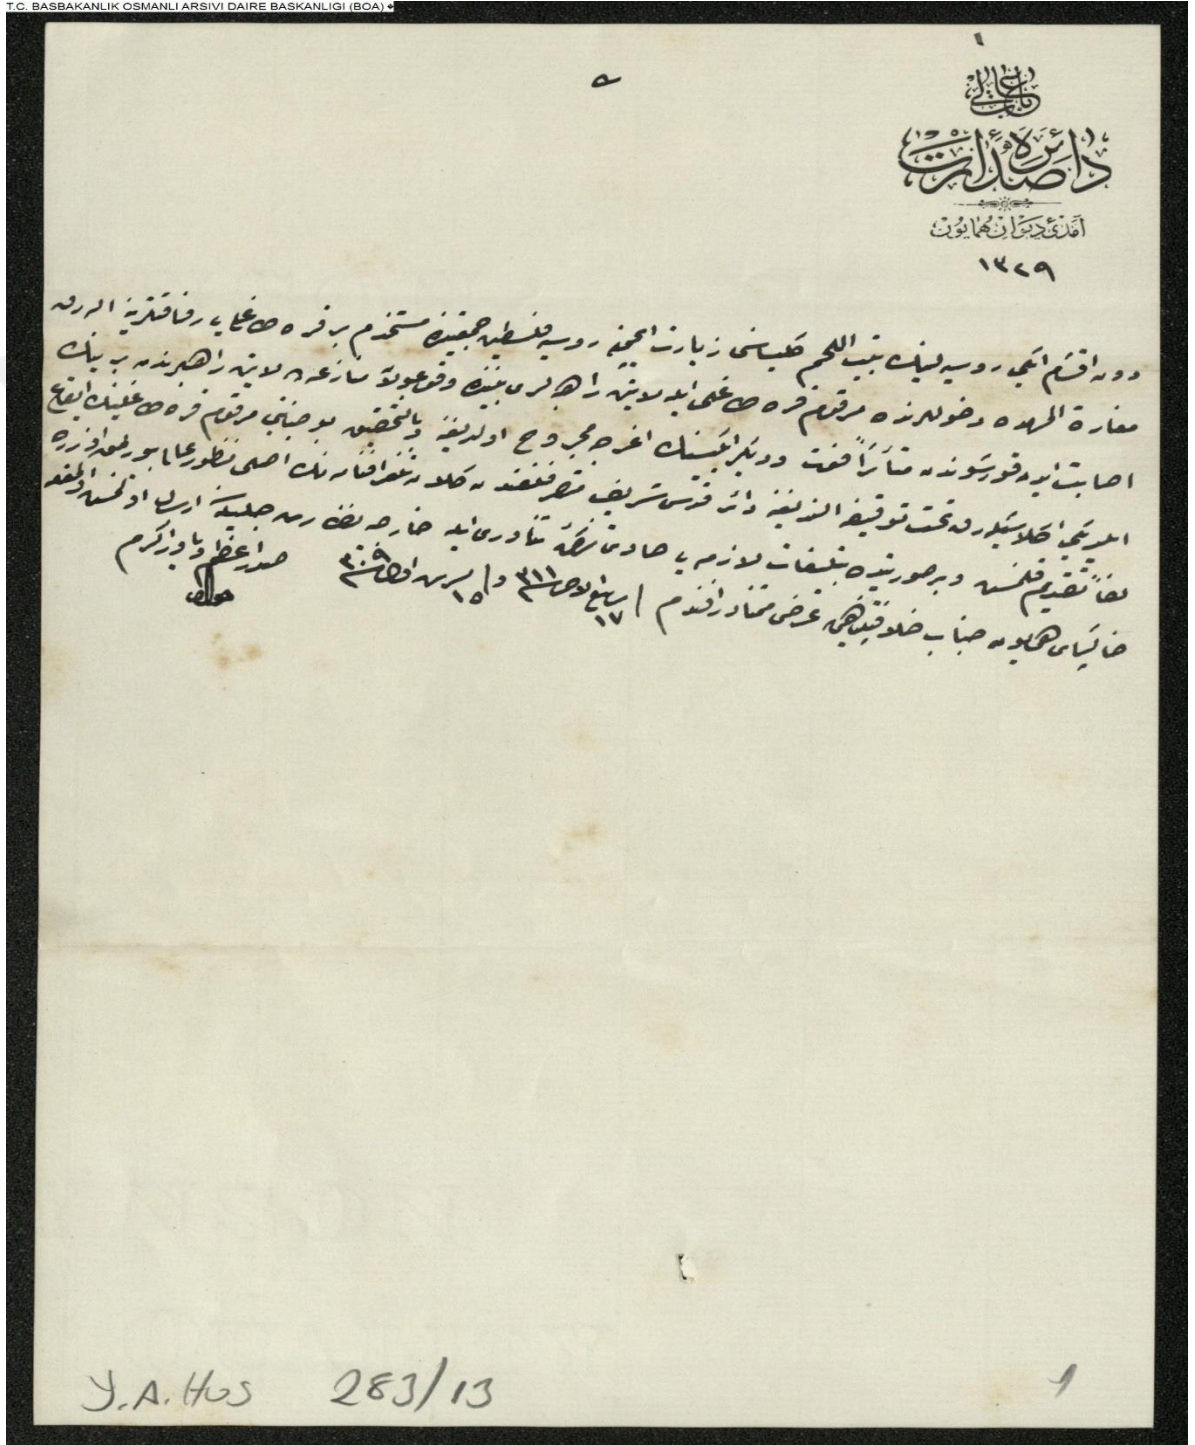 T.C. BASBAKANLIK OSMANLI ARSIVI DAIRE BASKANLIGI (BOA)
باب عالی
دائرهٔ صدارت
آمدئ دیوان همایون
١٣٢٩
دون اقشام ایكی روسیه لینك بیت اللحم كلیساسنی زیارت ایچون روسیه فلسطین جمعیتنده مستخدم بر قره طاغلی رفاقتلرینه اله رق
مغارة المهده دخوللرنده مرقوم قره طاغلی ایله لاتین راهبلری بیننده وقوعبولان منازعه ده لاتین راهبلرندن برینك
اصابت ایدن قورشوندن متأثراً فوت ودیكر ایكیسنك اغرجه مجروح اولدیغنه وبالتحقیق بو جنایتی مرقوم قره طاغلینك ایقاع
ایلدیكی اكلاشیلەرق تحت توقیفه الندیغنه دائر قدس شریف متصرفلغندن كلان تلغرافنامه نك اصلی منظور عالی بیورلمق اوزره
لفاً تقدیم قلنمش وبر صورتیده تبلیغات لازمه یی حاوی تذكرهٔ ثناوری ایله خارجیه نظارت جلیله سنه ارسال اولنمش اولمغله
خاكپای همایون جناب خلافتپناهی یه عرضی متمنادر افندم
١٧ ربیع الاخر ٣١١ و ١٥ تشرین اول ٣٠٩
صدراعظم ویاور اكرم
جواد
Y.A.HUS 283/13
1